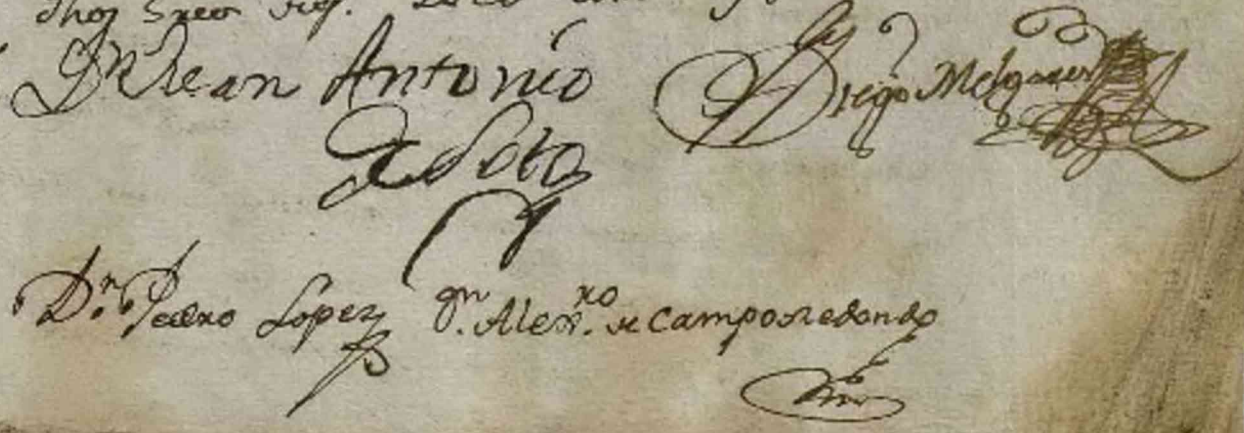 Dn Juan Antonio
de Soto
Diego Melgarejo
Dn. Pedro Lopez
Dn. Alexro. de Camporredondo